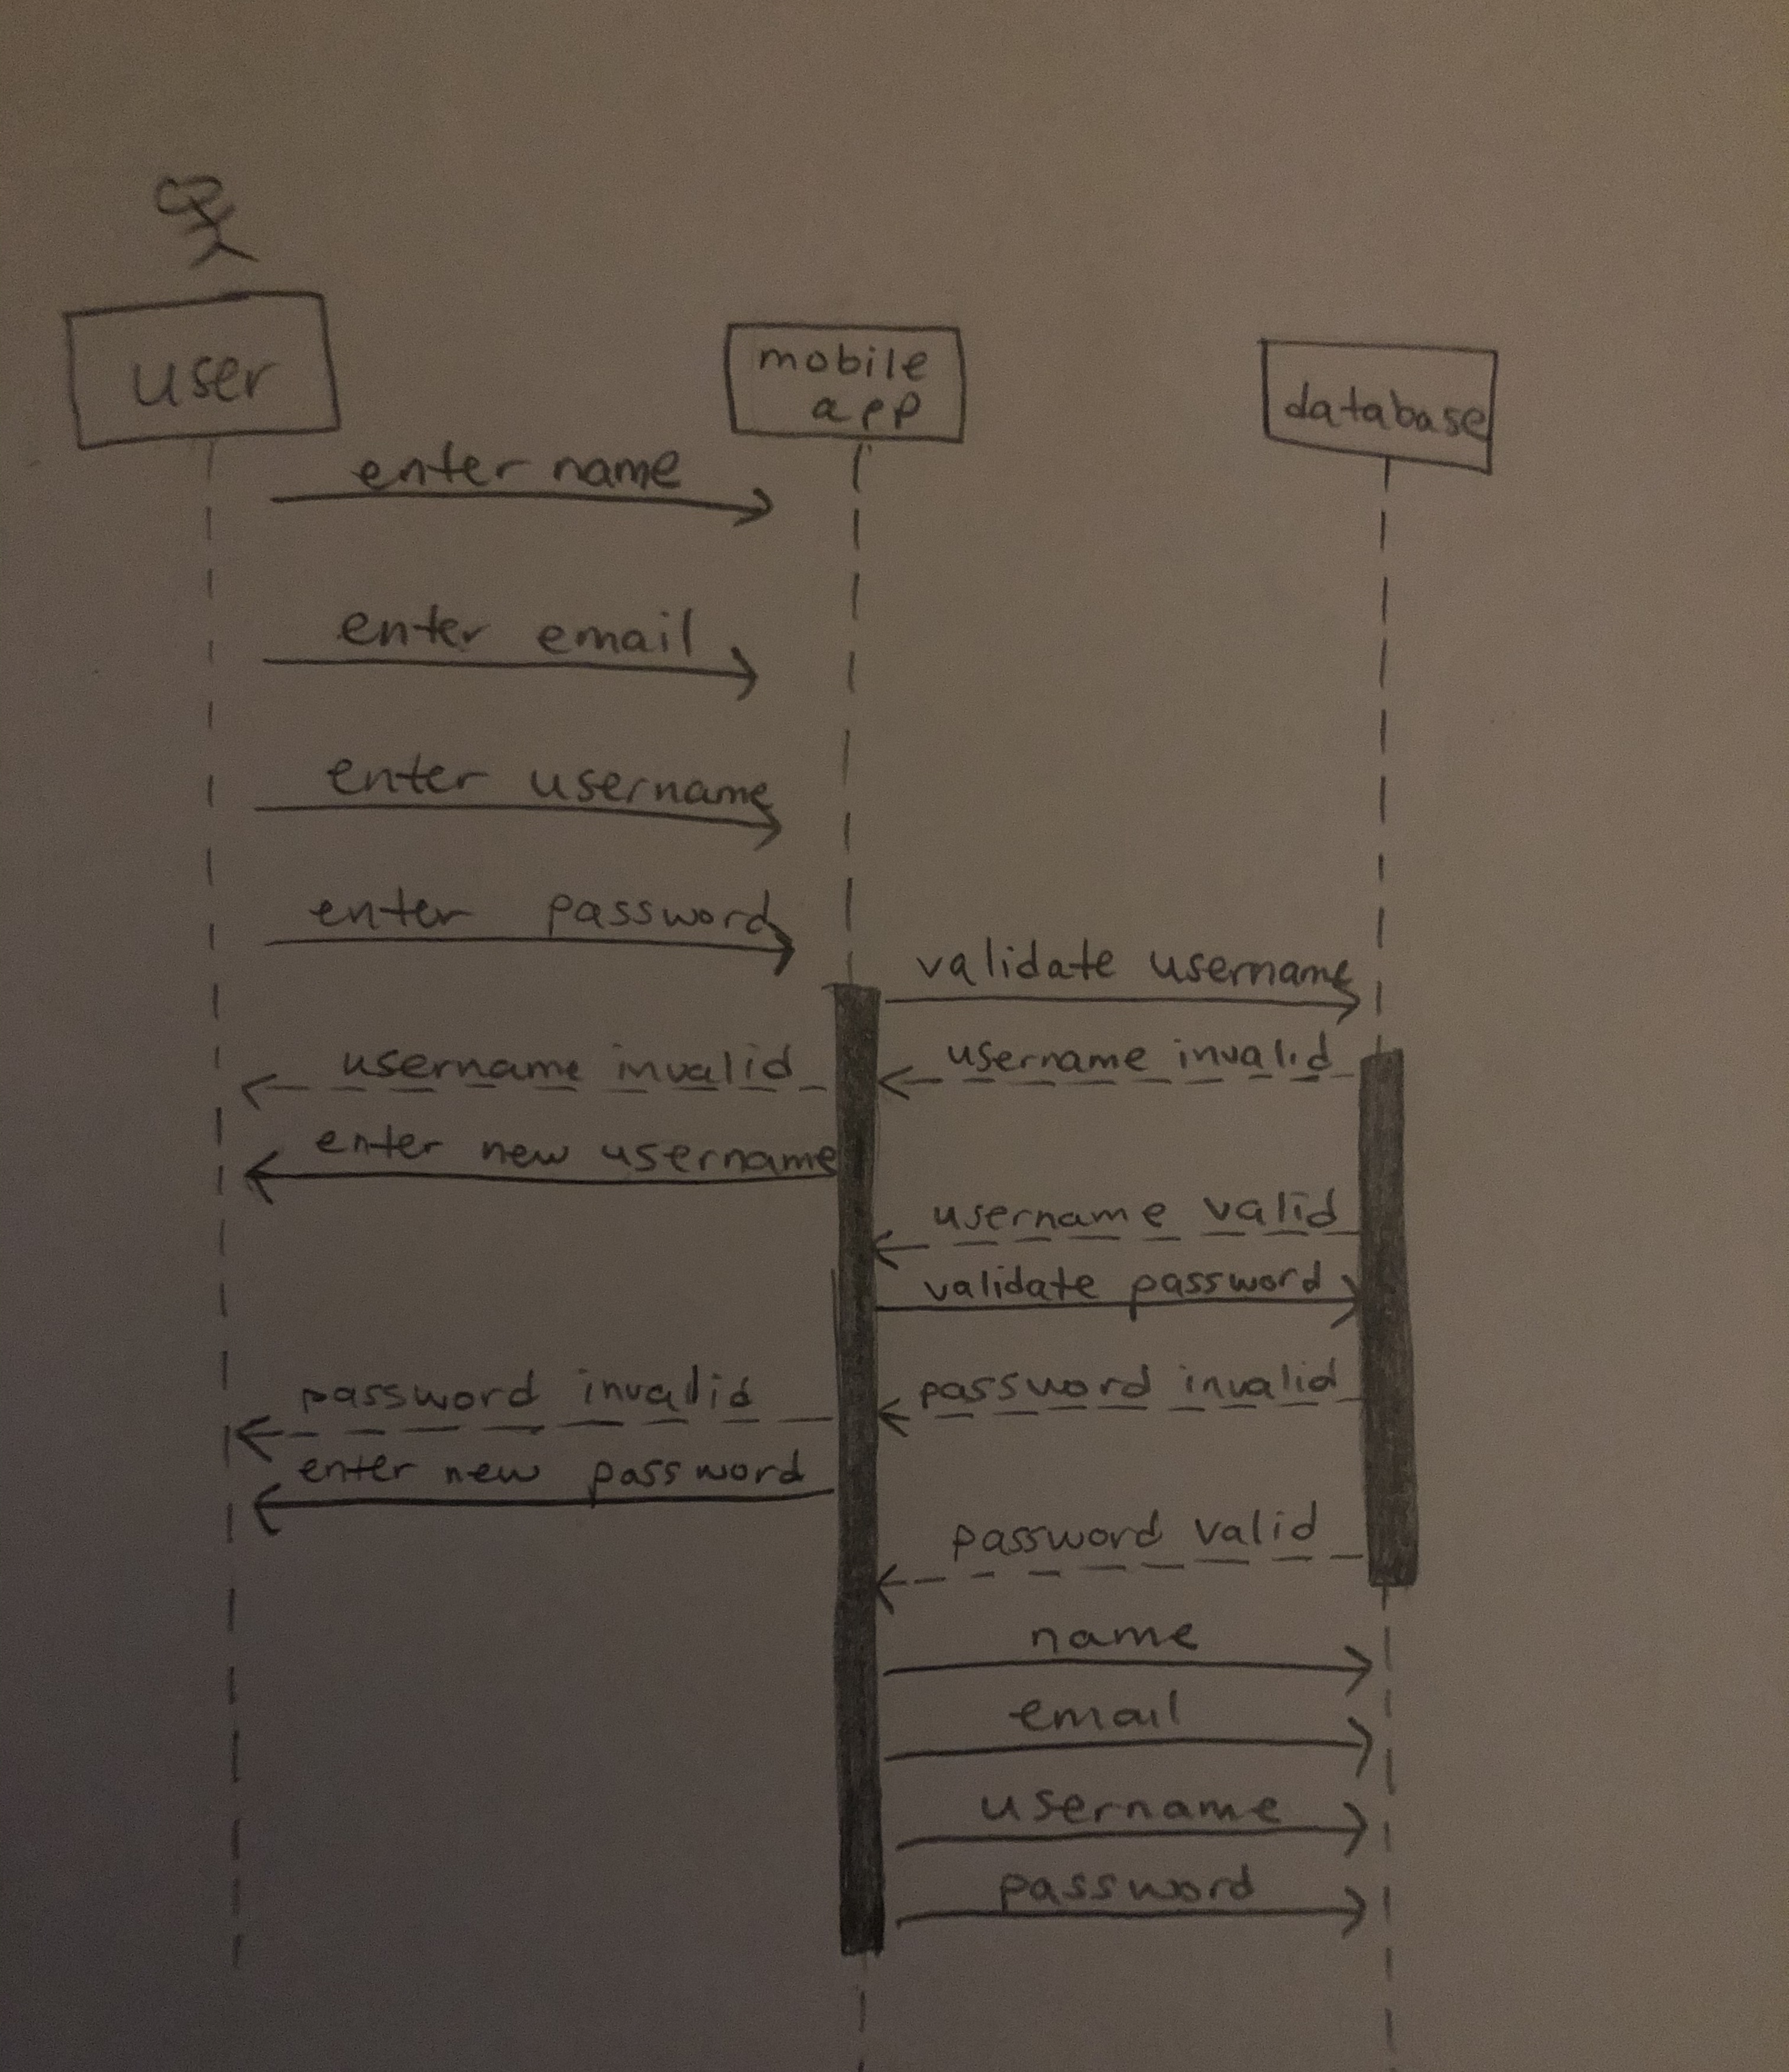 user
mobile
app
database
enter name
enter email
enter username
enter password
validate username
username invalid
username invalid
enter new username
username valid
validate password
password invalid
password invalid
enter new password
password valid
name
email
username
password